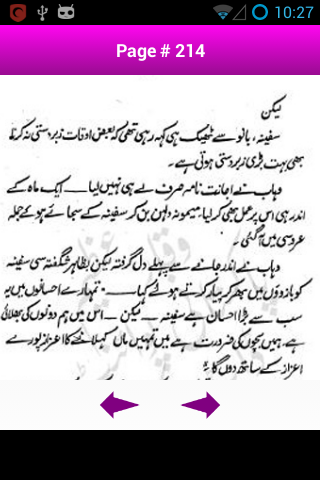 10:27
Page # 214
لیکن
سفینہ، بانو سے ٹھیک ہی کہہ رہی تھی کہ بعض اوقات زبردستی نہ کرنا
بھی بہت بڑی زبردستی ہوتی ہے۔
وہاب نے اجازت نامہ صرف لے ہی نہیں لیا ــــ ایک ماہ کے
اندر ہی اس پر عمل بھی کر لیا۔ میمونہ دلہن بن کر سفینہ کے سجائے ہوئے حجلہ
عروسی میں آ گئی۔
وہاب نے اندر جانے سے پہلے دل گرفتہ لیکن بظاہر شگفتہ سی سفینہ
کو بازوؤں میں بھر کر پیار کرتے ہوئے کہا ــــ "تمہارے احسانوں میں یہ
سب سے بڑا احسان ہے سفینہ ــ لیکن ــ اس میں ہم دونوں کی بھلائی
ہے۔ ہمیں بچوں کی ضرورت ہے میں تمہیں ماں کہلانے کا اعزاز پورے
اعزاز کے ساتھ دوں گا۔"